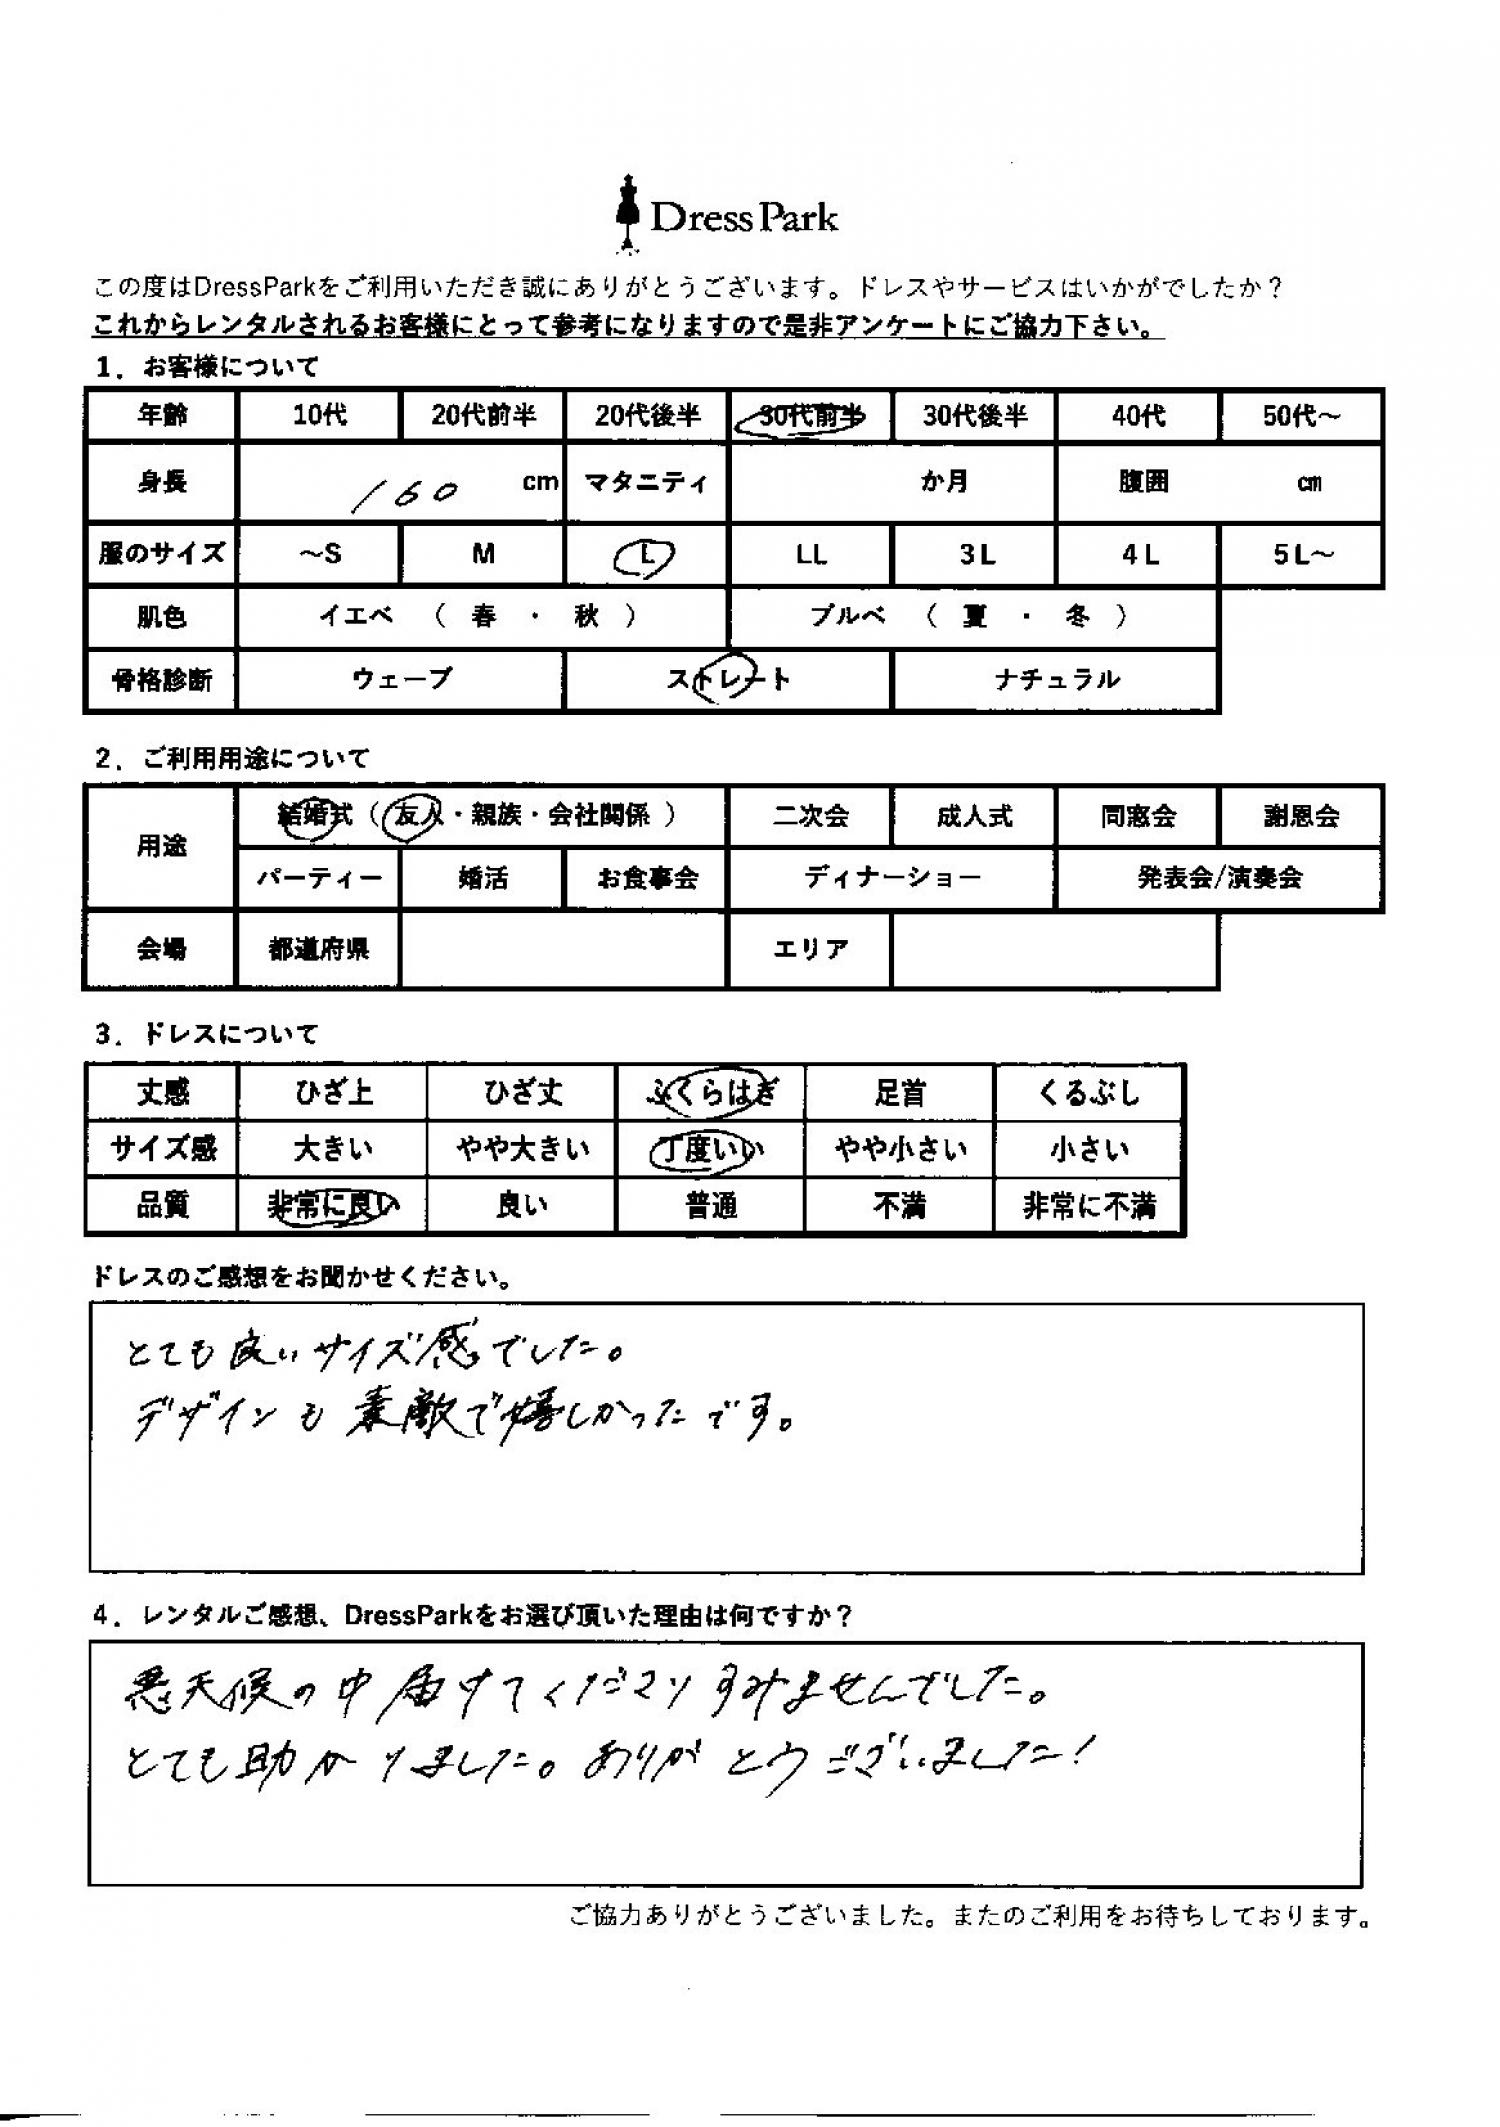 Dress Park
この度はDressParkをご利用いただき誠にありがとうございます。ドレスやサービスはいかがでしたか？
これからレンタルされるお客様にとって参考になりますので是非アンケートにご協力下さい。
1．お客様について
年齢 10代 20代前半 20代後半 30代前半 30代後半 40代 50代～
身長 160 cm マタニティ か月 腹囲 ㎝
服のサイズ ～S M L LL 3L 4L 5L～
肌色 イエベ （ 春 ・ 秋 ） ブルベ （ 夏 ・ 冬 ）
骨格診断 ウェーブ ストレート ナチュラル
2．ご利用用途について
用途 結婚式（ 友人・親族・会社関係 ） 二次会 成人式 同窓会 謝恩会
パーティー 婚活 お食事会 ディナーショー 発表会/演奏会
会場 都道府県 エリア
3．ドレスについて
丈感 ひざ上 ひざ丈 ふくらはぎ 足首 くるぶし
サイズ感 大きい やや大きい 丁度いい やや小さい 小さい
品質 非常に良い 良い 普通 不満 非常に不満
ドレスのご感想をお聞かせください。
とても良いサイズ感でした。
デザインも素敵で嬉しかったです。
4．レンタルご感想、DressParkをお選び頂いた理由は何ですか？
悪天候の中届けてくださりすみませんでした。
とても助かりました。ありがとうございました！
ご協力ありがとうございました。またのご利用をお待ちしております。